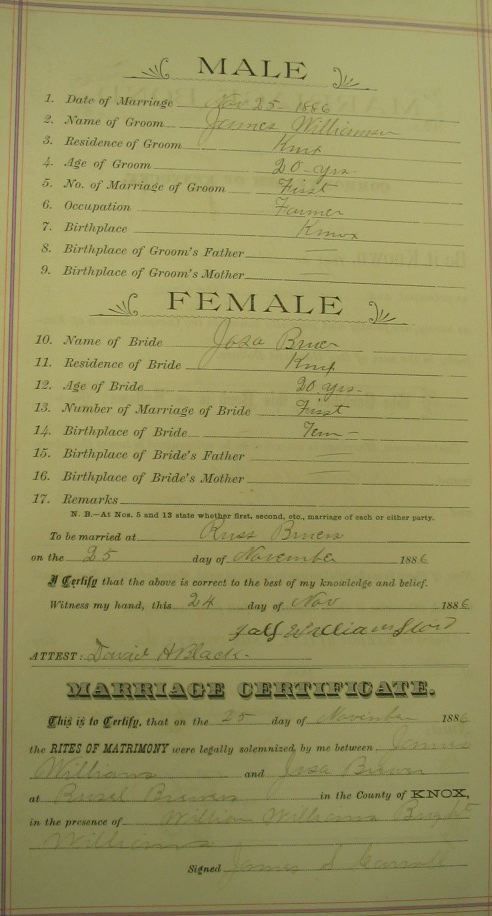 MALE
1. Date of Marriage Nov 25 1886
2. Name of Groom James
3. Residence of Groom Knox
4. Age of Groom 20 yrs
5. No. of Marriage of Groom First
6. Occupation Farmer
7. Birthplace Knox
8. Birthplace of Groom's Father
9. Birthplace of Groom's Mother
FEMALE
10. Name of Bride Josa
11. Residence of Bride Knox
12. Age of Bride 20 yrs.
13. Number of Marriage of Bride First
14. Birthplace of Bride Tenn
15. Birthplace of Bride's Father
16. Birthplace of Bride's Mother
17. Remarks
N. B.—At Nos. 5 and 13 state whether first, second, etc., marriage of each or either party.
To be married at Russ
on the 25 day of November 1886
I Certify that the above is correct to the best of my knowledge and belief.
Witness my hand, this 24 day of Nov 1886
ATTEST: David H Black.
MARRIAGE CERTIFICATE.
This is to Certify, that on the 25 day of November 1886
the RITES OF MATRIMONY were legally solemnized by me between James
Williams and Josa Brewer
at Brewers in the County of KNOX,
in the presence of William Williams
Williams
Signed James S Carroll